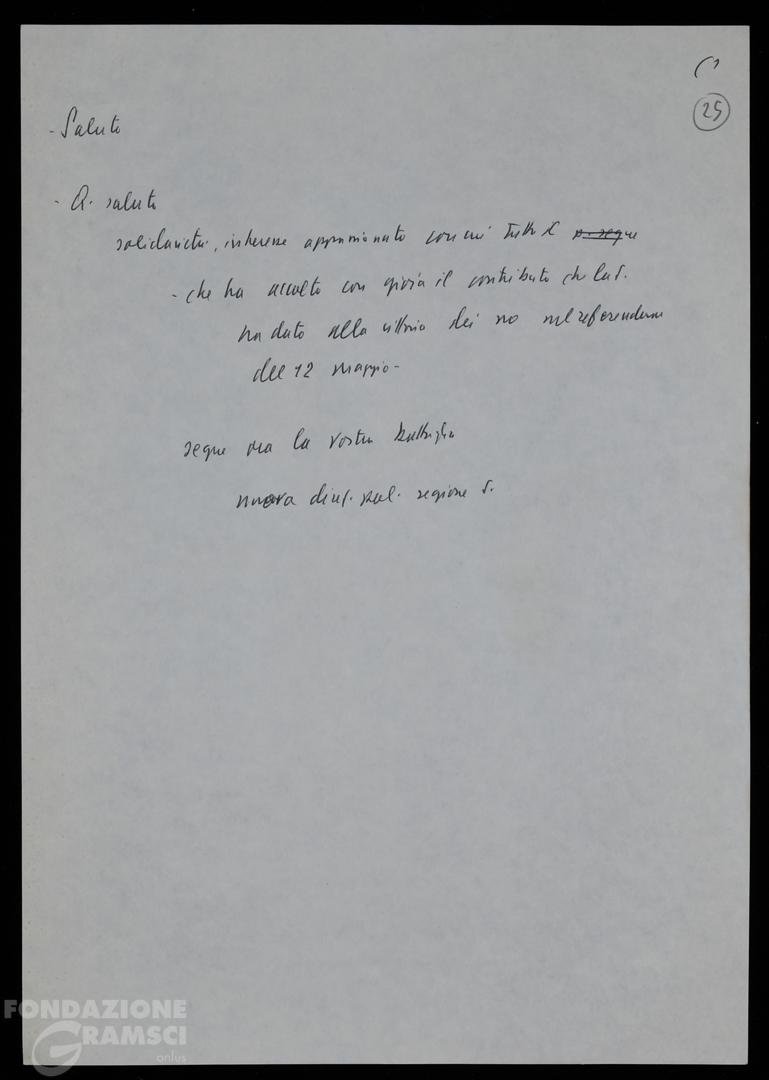 25
- Saluto
- Q. saluto
solidarietà, interesse appassionato con cui tutto il p. segue
- che ha accolto con gioia il contributo che la S.
ha dato alla vittoria dei no nel referendum
del 12 maggio -
segue ora la vostra battaglia
nuova regione S.
FONDAZIONE
GRAMSCI
onlus